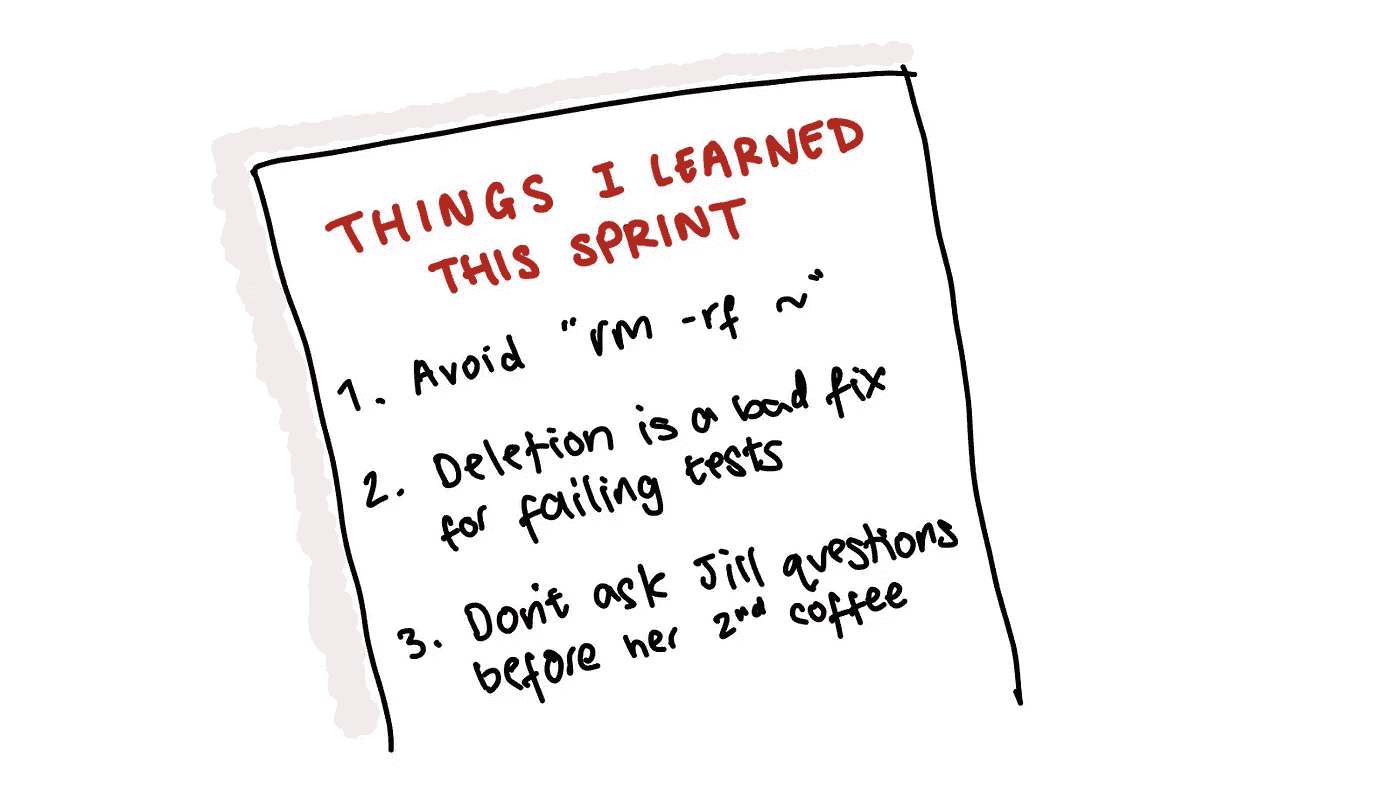 THINGS I LEARNED
THIS SPRINT
1. Avoid "rm -rf ~"
2. Deletion is a bad fix
for failing tests
3. Don't ask Jill questions
before her 2nd coffee